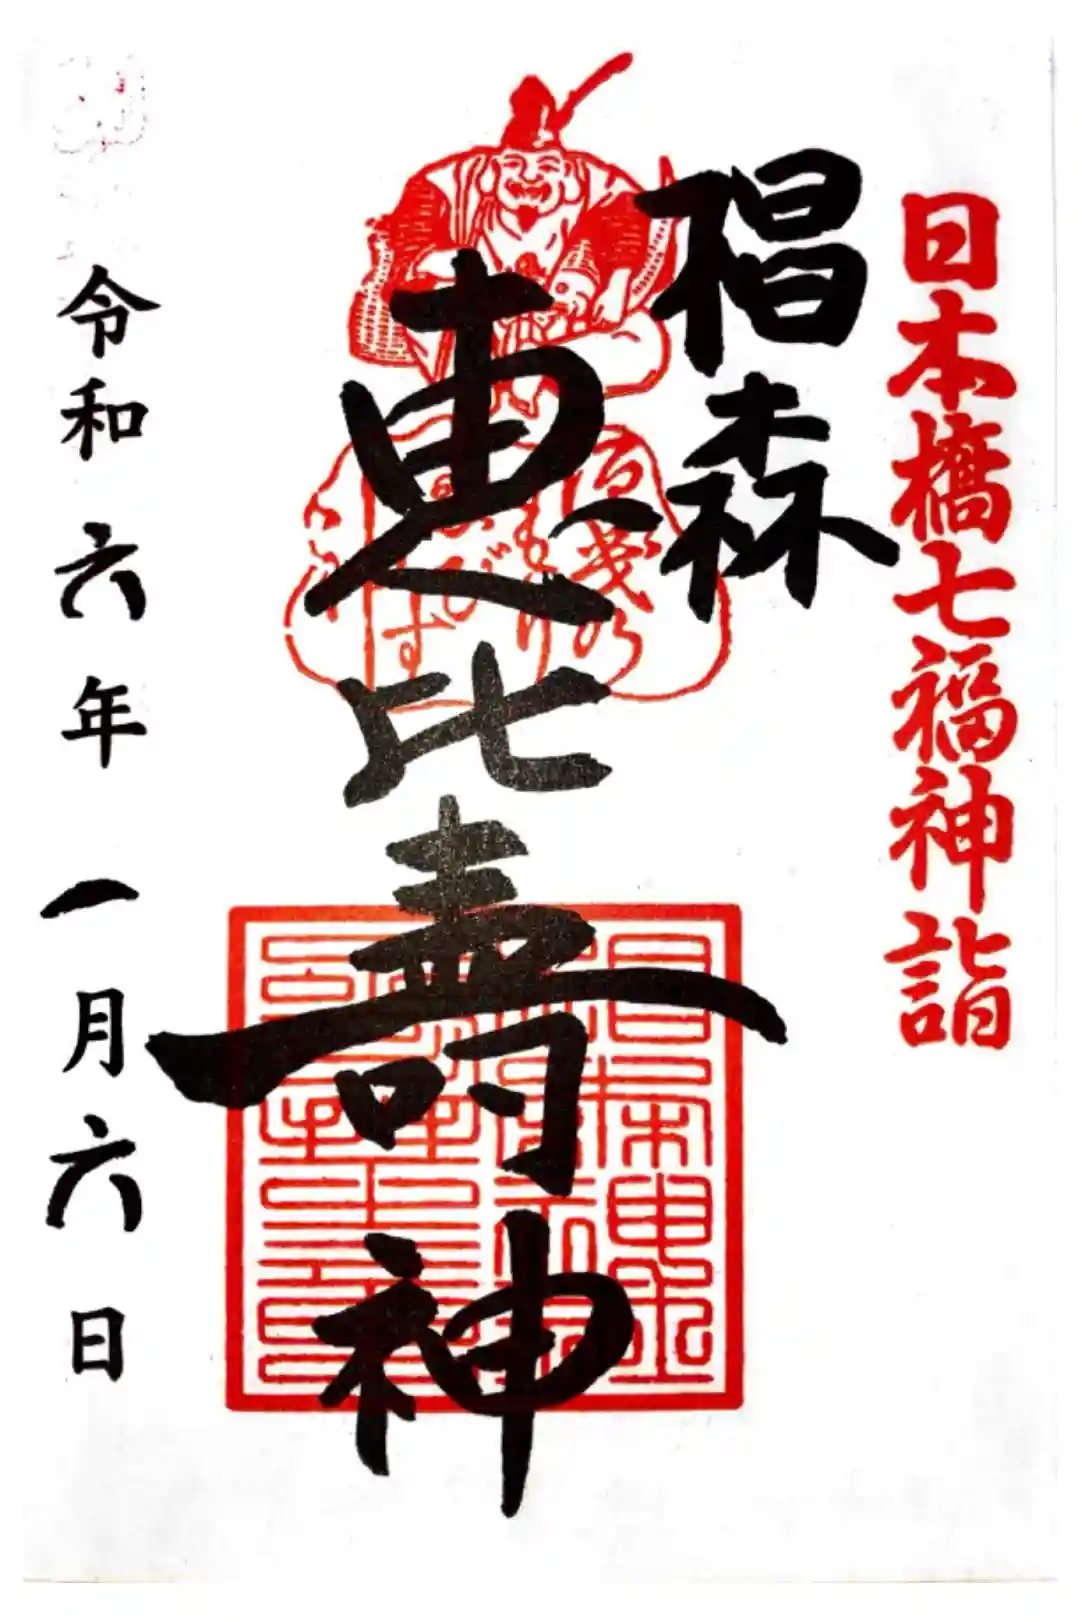 日本橋七福神詣
椙森
恵比壽神
令和六年一月六日